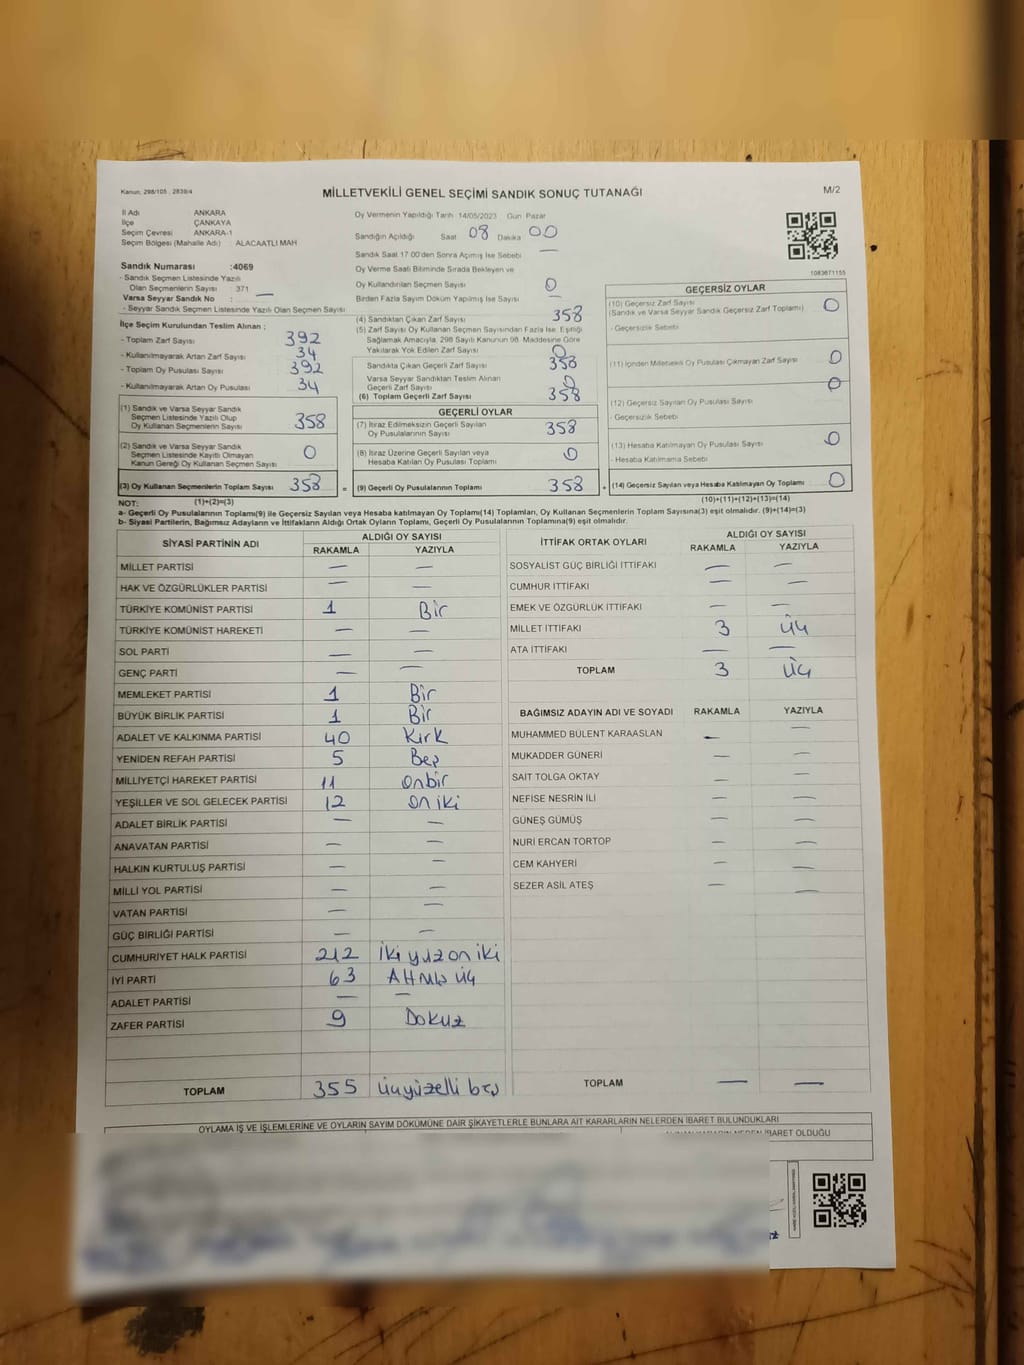 Kanun: 298/105 , 2839/4
MİLLETVEKİLİ GENEL SEÇİMİ SANDIK SONUÇ TUTANAĞI
M/2
İl Adı ANKARA
İlçe ÇANKAYA
Seçim Çevresi ANKARA-1
Seçim Bölgesi (Mahalle Adı) : ALACAATLI MAH
Sandık Numarası :4069
- Sandık Seçmen Listesinde Yazılı
Olan Seçmenlerin Sayısı : 371
Varsa Seyyar Sandık No : —
- Seyyar Sandık Seçmen Listesinde Yazılı Olan Seçmen Sayısı
İlçe Seçim Kurulundan Teslim Alınan ;
- Toplam Zarf Sayısı 392
- Kullanılmayarak Artan Zarf Sayısı 34
- Toplam Oy Pusulası Sayısı 392
- Kullanılmayarak Artan Oy Pusulası 34
(1) Sandık ve Varsa Seyyar Sandık
Seçmen Listesinde Yazılı Olup
Oy Kullanan Seçmenlerin Sayısı 358
(2) Sandık ve Varsa Seyyar Sandık
Seçmen Listesinde Kayıtlı Olmayan
Kanun Gereği Oy Kullanan Seçmen Sayısı 0
(3) Oy Kullanan Seçmenlerin Toplam Sayısı 358 =
(1)+(2)=(3)
Oy Vermenin Yapıldığı Tarih 14/05/2023 Gün Pazar
Sandığın Açıldığı Saat 08 Dakika 00
Sandık Saat 17.00'den Sonra Açımış İse Sebebi —
Oy Verme Saati Bitiminde Sırada Bekleyen ve
Oy Kullandırılan Seçmen Sayısı 0
Birden Fazla Sayım Döküm Yapılmış İse Sayısı —
(4) Sandıktan Çıkan Zarf Sayısı 358
(5) Zarf Sayısı Oy Kullanan Seçmen Sayısından Fazla İse, Eşitliği
Sağlamak Amacıyla, 298 Sayılı Kanunun 98. Maddesine Göre
Yakılarak Yok Edilen Zarf Sayısı 0
Sandıkta Çıkan Geçerli Zarf Sayısı 358
Varsa Seyyar Sandıktan Teslim Alınan
Geçerli Zarf Sayısı 0
(6) Toplam Geçerli Zarf Sayısı 358
GEÇERLİ OYLAR
(7) İtiraz Edilmeksizin Geçerli Sayılan
Oy Pusulalarının Sayısı 358
(8) İtiraz Üzerine Geçerli Sayılan veya
Hesaba Katılan Oy Pusulası Toplamı 0
(9) Geçerli Oy Pusulalarının Toplamı 358 +
1083671155
GEÇERSİZ OYLAR
(10) Geçersiz Zarf Sayısı
(Sandık ve Varsa Seyyar Sandık Geçersiz Zarf Toplamı) 0
- Geçersizlik Sebebi
(11) İçinden Milletvekili Oy Pusulası Çıkmayan Zarf Sayısı 0
0
(12) Geçersiz Sayılan Oy Pusulası Sayısı
- Geçersizlik Sebebi
(13) Hesaba Katılmayan Oy Pusulası Sayısı 0
- Hesaba Katılmama Sebebi
(14) Geçersiz Sayılan veya Hesaba Katılmayan Oy Toplamı 0
(10)+(11)+(12)+(13)=(14)
NOT:
a- Geçerli Oy Pusulalarının Toplamı(9) ile Geçersiz Sayılan veya Hesaba katılmayan Oy Toplamı(14) Toplamları, Oy Kullanan Seçmenlerin Toplam Sayısına(3) eşit olmalıdır. (9)+(14)=(3)
b- Siyasi Partilerin, Bağımsız Adayların ve İttifakların Aldığı Ortak Oyların Toplamı, Geçerli Oy Pusulalarının Toplamına(9) eşit olmalıdır.
SİYASİ PARTİNİN ADI ALDIĞI OY SAYISI
RAKAMLA YAZIYLA
MİLLET PARTİSİ — —
HAK VE ÖZGÜRLÜKLER PARTİSİ — —
TÜRKİYE KOMÜNİST PARTİSİ 1 Bir
TÜRKİYE KOMÜNİST HAREKETİ — —
SOL PARTİ — —
GENÇ PARTİ — —
MEMLEKET PARTİSİ 1 Bir
BÜYÜK BİRLİK PARTİSİ 1 Bir
ADALET VE KALKINMA PARTİSİ 40 Kırk
YENİDEN REFAH PARTİSİ 5 Beş
MİLLİYETÇİ HAREKET PARTİSİ 11 onbir
YEŞİLLER VE SOL GELECEK PARTİSİ 12 on iki
ADALET BİRLİK PARTİSİ — —
ANAVATAN PARTİSİ — —
HALKIN KURTULUŞ PARTİSİ — —
MİLLİ YOL PARTİSİ — —
VATAN PARTİSİ — —
GÜÇ BİRLİĞİ PARTİSİ — —
CUMHURİYET HALK PARTİSİ 212 İki yüz on iki
İYİ PARTİ 63 Altmış üç
ADALET PARTİSİ — —
ZAFER PARTİSİ 9 Dokuz
TOPLAM 355 üçyüzelli beş
İTTİFAK ORTAK OYLARI ALDIĞI OY SAYISI
RAKAMLA YAZIYLA
SOSYALİST GÜÇ BİRLİĞİ İTTİFAKI — —
CUMHUR İTTİFAKI — —
EMEK VE ÖZGÜRLÜK İTTİFAKI — —
MİLLET İTTİFAKI 3 üç
ATA İTTİFAKI — —
TOPLAM 3 üç
BAĞIMSIZ ADAYIN ADI VE SOYADI RAKAMLA YAZIYLA
MUHAMMED BÜLENT KARAASLAN — —
MUKADDER GÜNERİ — —
SAİT TOLGA OKTAY — —
NEFİSE NESRİN İLİ — —
GÜNEŞ GÜMÜŞ — —
NURİ ERCAN TORTOP — —
CEM KAHYERİ — —
SEZER ASİL ATEŞ — —
TOPLAM — —
OYLAMA İŞ VE İŞLEMLERİNE VE OYLARIN SAYIM DÖKÜMÜNE DAİR ŞİKAYETLERLE BUNLARA AİT KARARLARIN NELERDEN İBARET BULUNDUKLARI
İBARET OLDUĞU